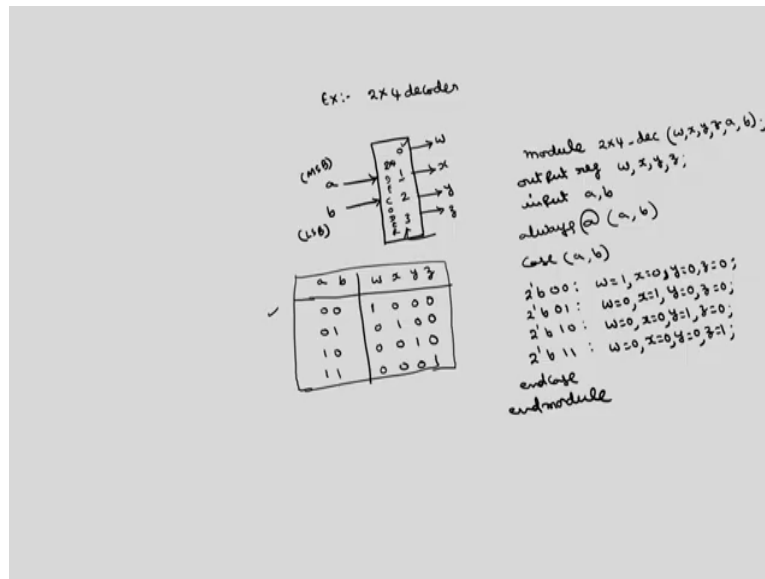 Ex:- 2x4 decoder
(MSB)
a
b
(LSB)
0
1
2
3
w
x
y
z
a b w x y z
00 1 0 0 0
01 0 1 0 0
10 0 0 1 0
11 0 0 0 1
module 2x4-dec (w,x,y,z,a,b);
output reg w,x,y,z;
input a,b
always @ (a,b)
case (a,b)
2'b 00: w=1,x=0,y=0,z=0;
2'b 01: w=0,x=1,y=0,z=0;
2'b 10: w=0,x=0,y=1,z=0;
2'b 11: w=0,x=0,y=0,z=1;
endcase
endmodule